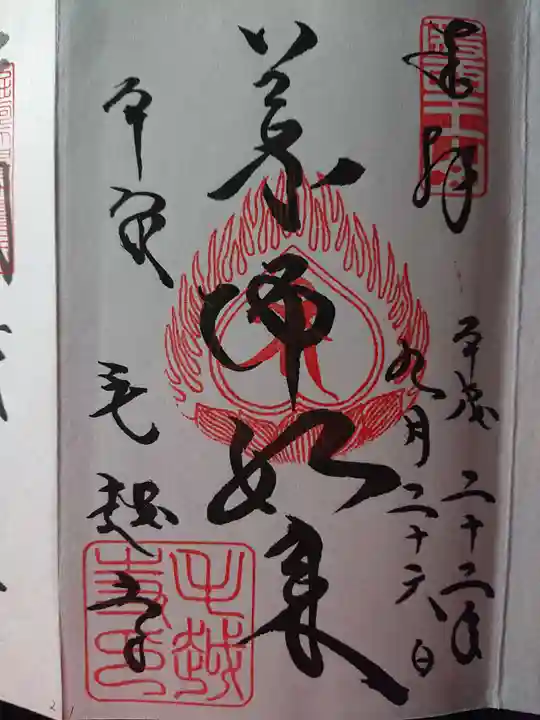 奉拝
平成二十二年
九月二十六日
薬師如来
平泉
毛越寺
毛越
寺印